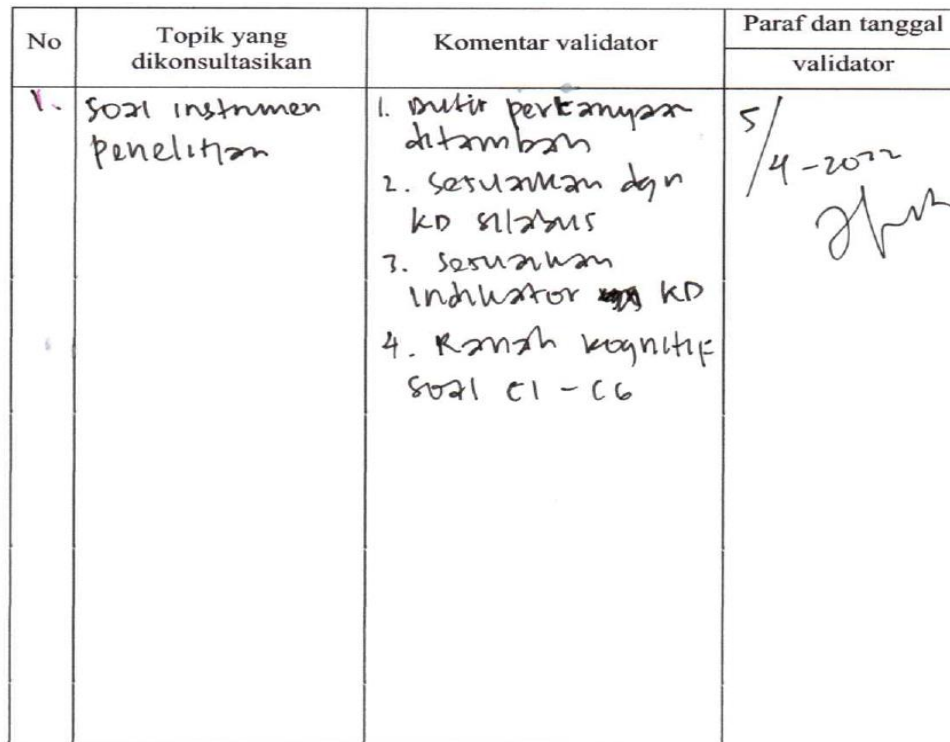 No
Topik yang
dikonsultasikan
Komentar validator
Paraf dan tanggal
validator
1.
Soal instrumen
penelitian
1. Butir pertanyaan
ditambah
2. Sesuaikan dgn
KD silabus
3. Sesuaikan
indikator KD
4. Ranah kognitif
soal C1 - C6
5/4-2022